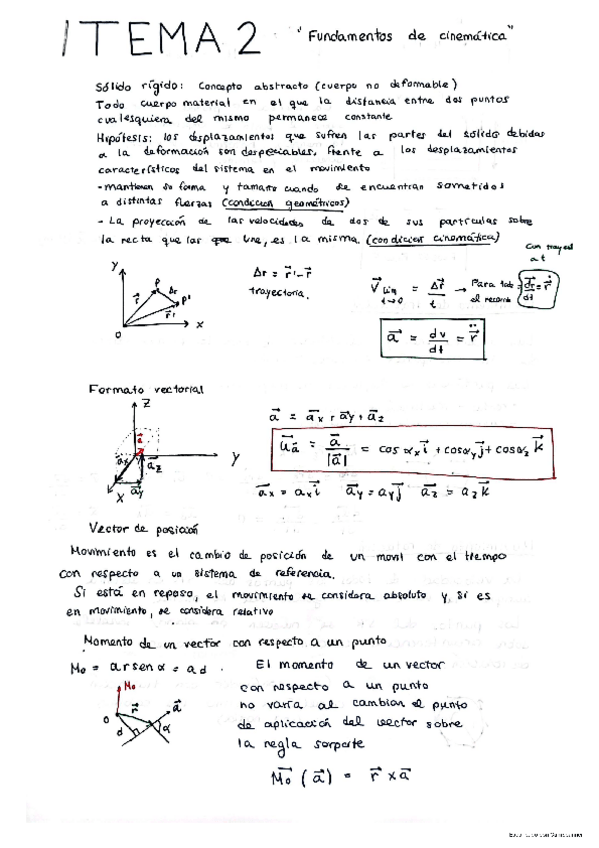 TEMA 2 "Fundamentos de cinemática"
Sólido rígido: Concepto abstracto (cuerpo no deformable)
Todo cuerpo material en el que la distancia entre dos puntos
cualesquiera del mismo permanece constante
Hipótesis: los desplazamientos que sufren las partes del sólido debidas
a la deformación son despeciables, frente a los desplazamientos
característicos del sistema en el movimiento
- mantienen su forma y tamaño cuando se encuentran sometidos
a distintas fuerzas (condicion geométricos)
- La proyección de las velocidades de dos de sus partículas sobre
la recta que las une, es la misma (condicion cinemática)
Y P Δr P' r r' O X
Δr = r⃗' - r⃗
trayectoria.
V⃗ Lim t→0 = Δr⃗ / t → Para todo el = dr⃗/dt = r⃗˙
a⃗ = dv/dt = r⃗¨
Formato vectorial
Z a⃗ a⃗x a⃗z a⃗y X Y
a⃗ = a⃗x + a⃗y + a⃗z
u⃗a = a⃗/|a⃗| = cos αx i⃗ + cos αy j⃗ + cos αz k⃗
a⃗x = ax i⃗ a⃗y = ay j⃗ a⃗z = az k⃗
Vector de posición
Movimiento es el cambio de posición de un movil con el tiempo
con respecto a un sistema de referencia.
Si está en reposo, el movimiento se considera absoluto y, si es
en movimiento, se considera relativo
Momento de un vector con respecto a un punto
Mo = a r sen α = a d.
Mo r⃗ a⃗ O d α
El momento de un vector
con respecto a un punto
no varia al cambian el punto
de aplicación del vector sobre
la regla soporte
M⃗o (a⃗) = r⃗ x a⃗